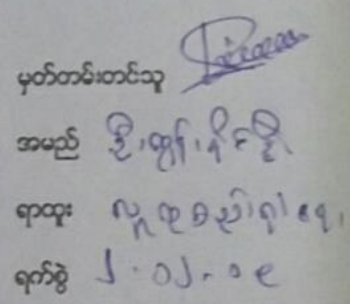 မှတ်တမ်းတင်သူ
အမည် ဦးထွန်းနိုင်ဦး
ရာထူး လူထုစည်းရုံးရေး
ရက်စွဲ ၂.၁၂.၁၉